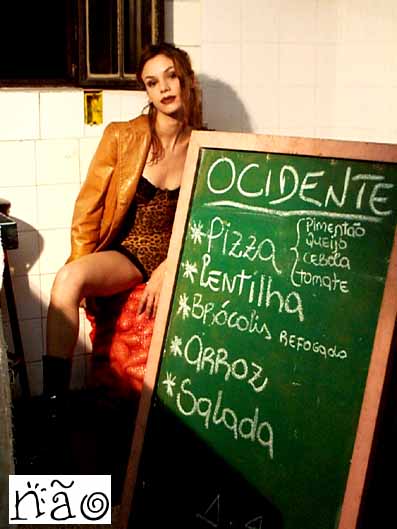 OCIDENTE
* Pizza { Pimentão
queijo
cebola
tomate
* Lentilha
* Brócolis REFOGado
* arroz
* Salada
não